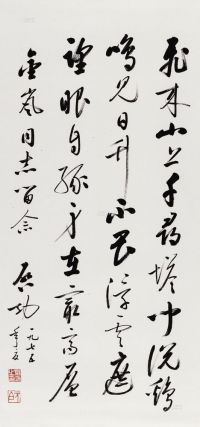 飛来山上千尋塔聞説鷄
鳴見日升不畏浮雲遮
望眼自緣身在最高層
金嵐同志留念
启功
一九七五